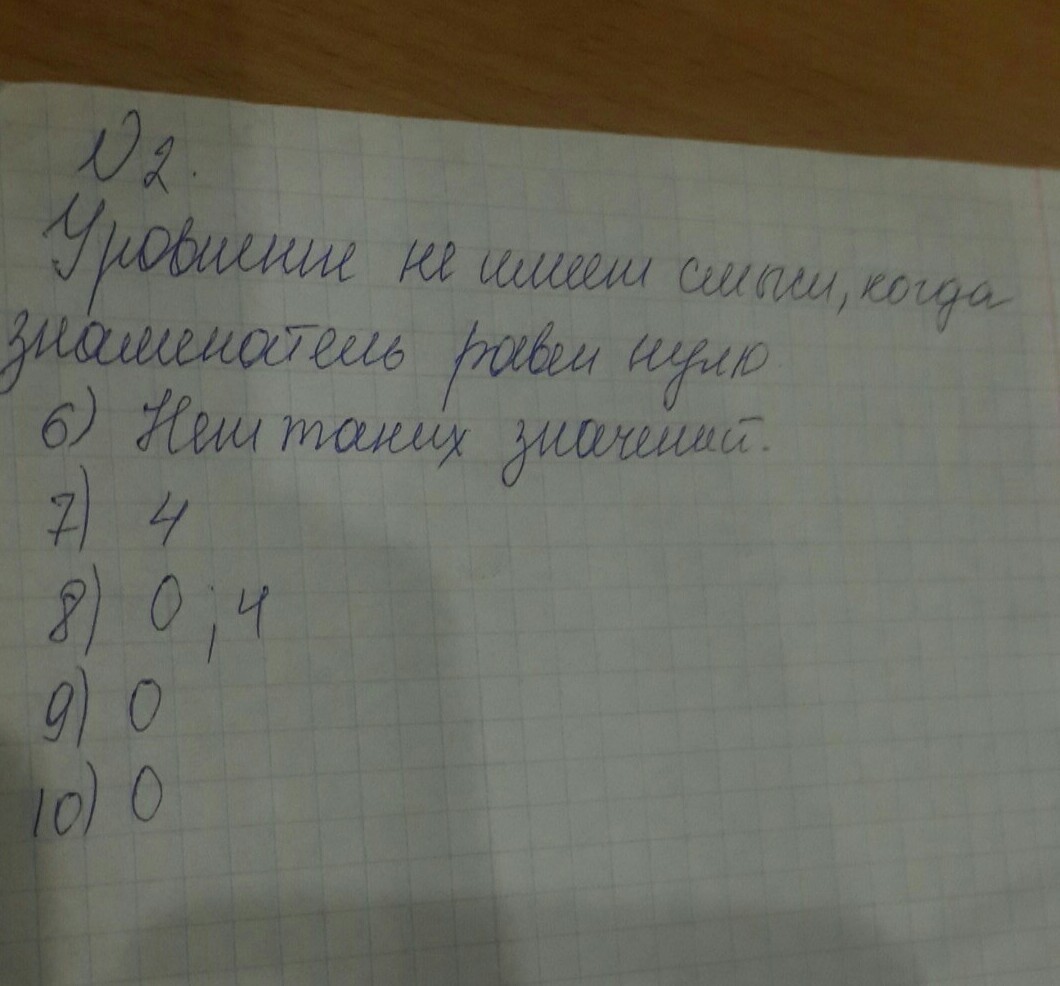 № 2.
Уровнение не имеет смысл, когда
знаменатель равен нулю
6) Нет таких значений.
7) 4
8) 0 ; 4
9) 0
10) 0